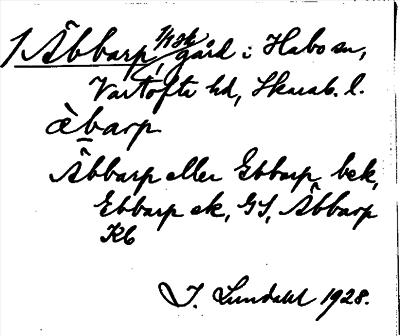 1 Äbbarp, 1/1 sk gård i Habo sn,
Vartofta hd, Skarab. l.
àbarp
Äbbarp eller Ebbarp bek,
Ebbarp ek, GS, Äbbarp
Kb
J. Lundahl 1928.